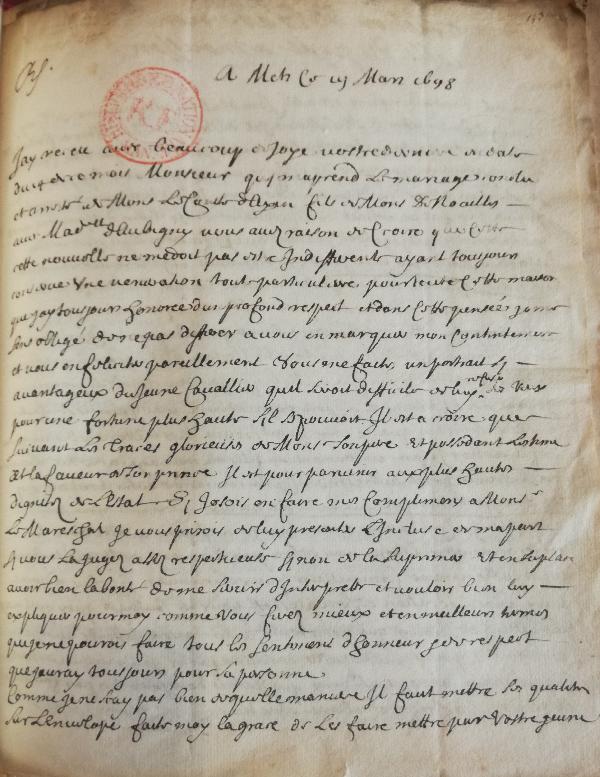 A Mets Ce 19 Mars 1698
Jay receu avec beaucoup de Joye vostre du
du 4 de ce mois Monsieur qui m'aprend Le mariage conclu
et arresté de Mons Le Comte d'Ayen fils de Mons De Noailles
avec Madelle d'Aubigny vous avez raison de Croire que Cette
cette nouvelle ne me doit pas estre Indifferente ayant tousjours
conservé une veneration toute particuliere pour toute Cette maison
que jay tousjours honorée d'un profond respect et dans Cette pensée je me
sens obligé de ne pas differer a vous en marquer mon Contentement
et vous en feliciter pareillement Vous me faites un portrait sy
avantageux du Jeune Cavallier quil seroit difficile de luy refuser des vœux
pour une fortune plus haute s'il se pouvoit. Il est a croire que
suivant Les Traces glorieuses de Mons son pere et possedant L'estime
et la faveur de son prince Il est pour parvenir aux plus hautes
dignitez de L'Estat Si J'osois en faire mes Complimens a Monsr
Le Mareschal Je vous prirois de luy presenter L'Incluse de ma part
sy vous La jugez assez respectueuse sinon de la suprimer et en sa place
avoir bien la bonté de me servir d'Interprete et vouloir bien luy
expliquer pour moy comme vous sçavez mieux et en meilleurs termes
que je ne pourois faire tous Les sentimens d'honneur et de respect
que jauray tousjours pour sa personne.
Comme je ne sçay pas bien de quelle maniere Il faut mettre Ses qualitez
sur L'enveloppe faites moy la grace de Les faire mettre par Vostre